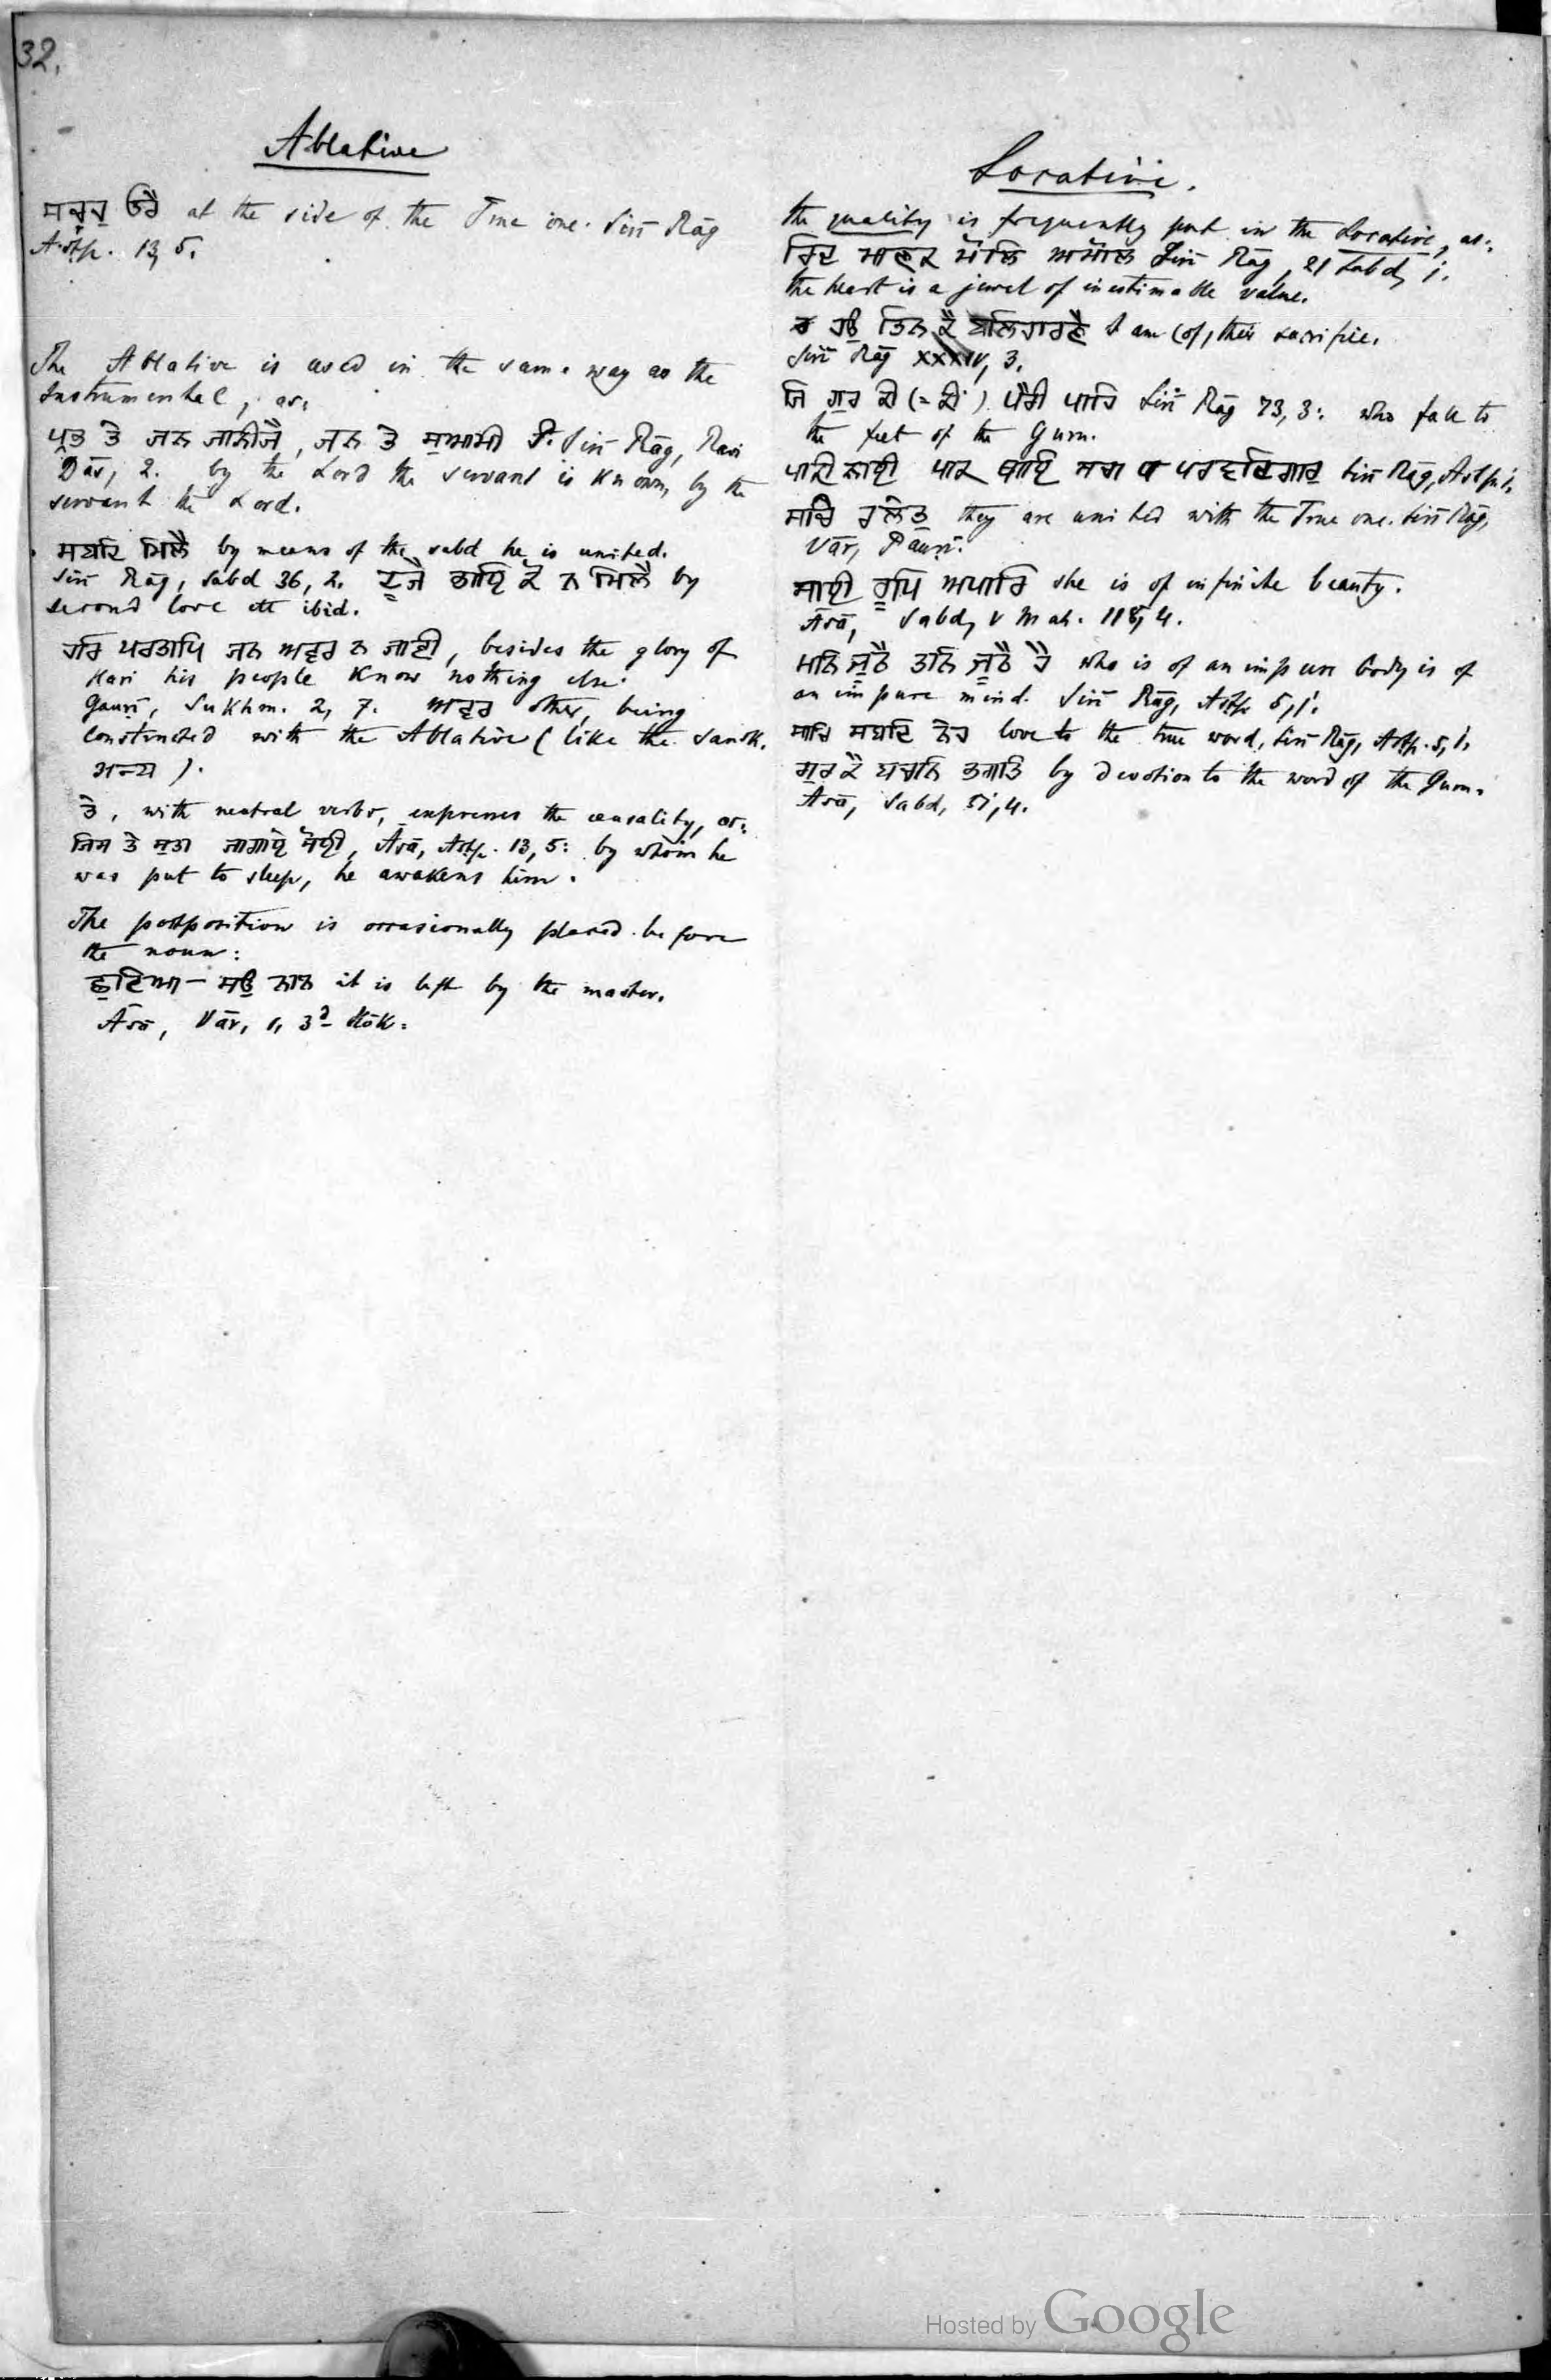 32.
Ablative
ਸਚਹੁ ਓਰੈ at the side of the True one. Sirī Rāg
Aṣṭp. 13, 5.
The Ablative is used in the same way as the
Instrumental, as:
ਪ੍ਰਭ ਤੇ ਜਨ ਜਾਨੀਜੈ, ਜਨ ਤੇ ਸੁਆਮੀ Sirī Rāg, Ravi
Dās, 2. by the Lord the servant is known, by the
servant the Lord.
ਸਬਦਿ ਮਿਲੈ by means of the sabd he is united.
Sirī Rāg, Sabd 36, 2. ਦੂਜੈ ਭਾਇ ਕੋ ਨ ਮਿਲੈ by
second love etc ibid.
ਹਰਿ ਪਰਤਾਪਿ ਜਨ ਅਵਰ ਨ ਜਾਣੀ, besides the glory of
Hari his people know nothing else.
Gauṛī, Sukhm. 2, 7. ਅਵਰ other, being
constructed with the Ablative (like the Sansk.
अन्य).
ਤੇ, with neutral verbs, expresses the causality, as:
ਜਿਸ ਤੇ ਸੁਤਾ ਜਾਗਾਏ ਸੋਈ, Āsā, Aṣṭp. 13, 5: by whom he
was put to sleep, he awakens him.
The postposition is occasionally placed before
the noun:
ਛੁਟਿਆ – ਸਉ it is left by the master.
Āsā, Vār, 1, 3d Slōk.
Locative.
the quality is frequently put in the Locative, as:
ਰਿਦ ਮਾਣਕ ਮੋਲਿ ਅਮੋਲ Sirī Rāg, 21 Sabd, 1.
the heart is a jewel of inestimable value.
ਹਉ ਤਿਨ ਕੈ ਬਲਿਹਾਰਣੈ I am (of) their sacrifice.
Sirī Rāg XXXIV, 3.
ਜਿ ਗੁਰ ਕੀ (= ਕੀਂ) ਪੈਰੀ ਪਾਹਿ Sirī Rāg 73, 3: who fall to
the feet of the Guru.
ਪਾਕੀ ਨਾਈ ਪਾਕ ਥਾਇ ਸਚਾ ਪਰਵਦਿਗਾਰੁ Sirī Rāg, Aṣṭp. 1.
ਸਚਿ ਰਲੇਤੁ they are united with the True one. Sirī Rāg,
Vār, Pauṛī.
ਸਾਈ ਰੂਪਿ ਅਪਾਰਿ she is of infinite beauty.
Āsā, Sabd, V Mah. 118, 4.
ਮਨਿ ਜੂਠੈ ਤਨਿ ਜੂਠੈ ਹੈ who is of an impure body is of
an impure mind. Sirī Rāg, Aṣṭp. 5, 1.
ਸਾਚਿ ਸਬਦਿ ਨੇਹ love to the true word, Sirī Rāg, Aṣṭp. 5, 1.
ਗੁਰ ਕੈ ਬਚਨਿ ਭਗਤਿ by devotion to the word of the Guru.
Āsā, Sabd, 51, 4.
Hosted by Google